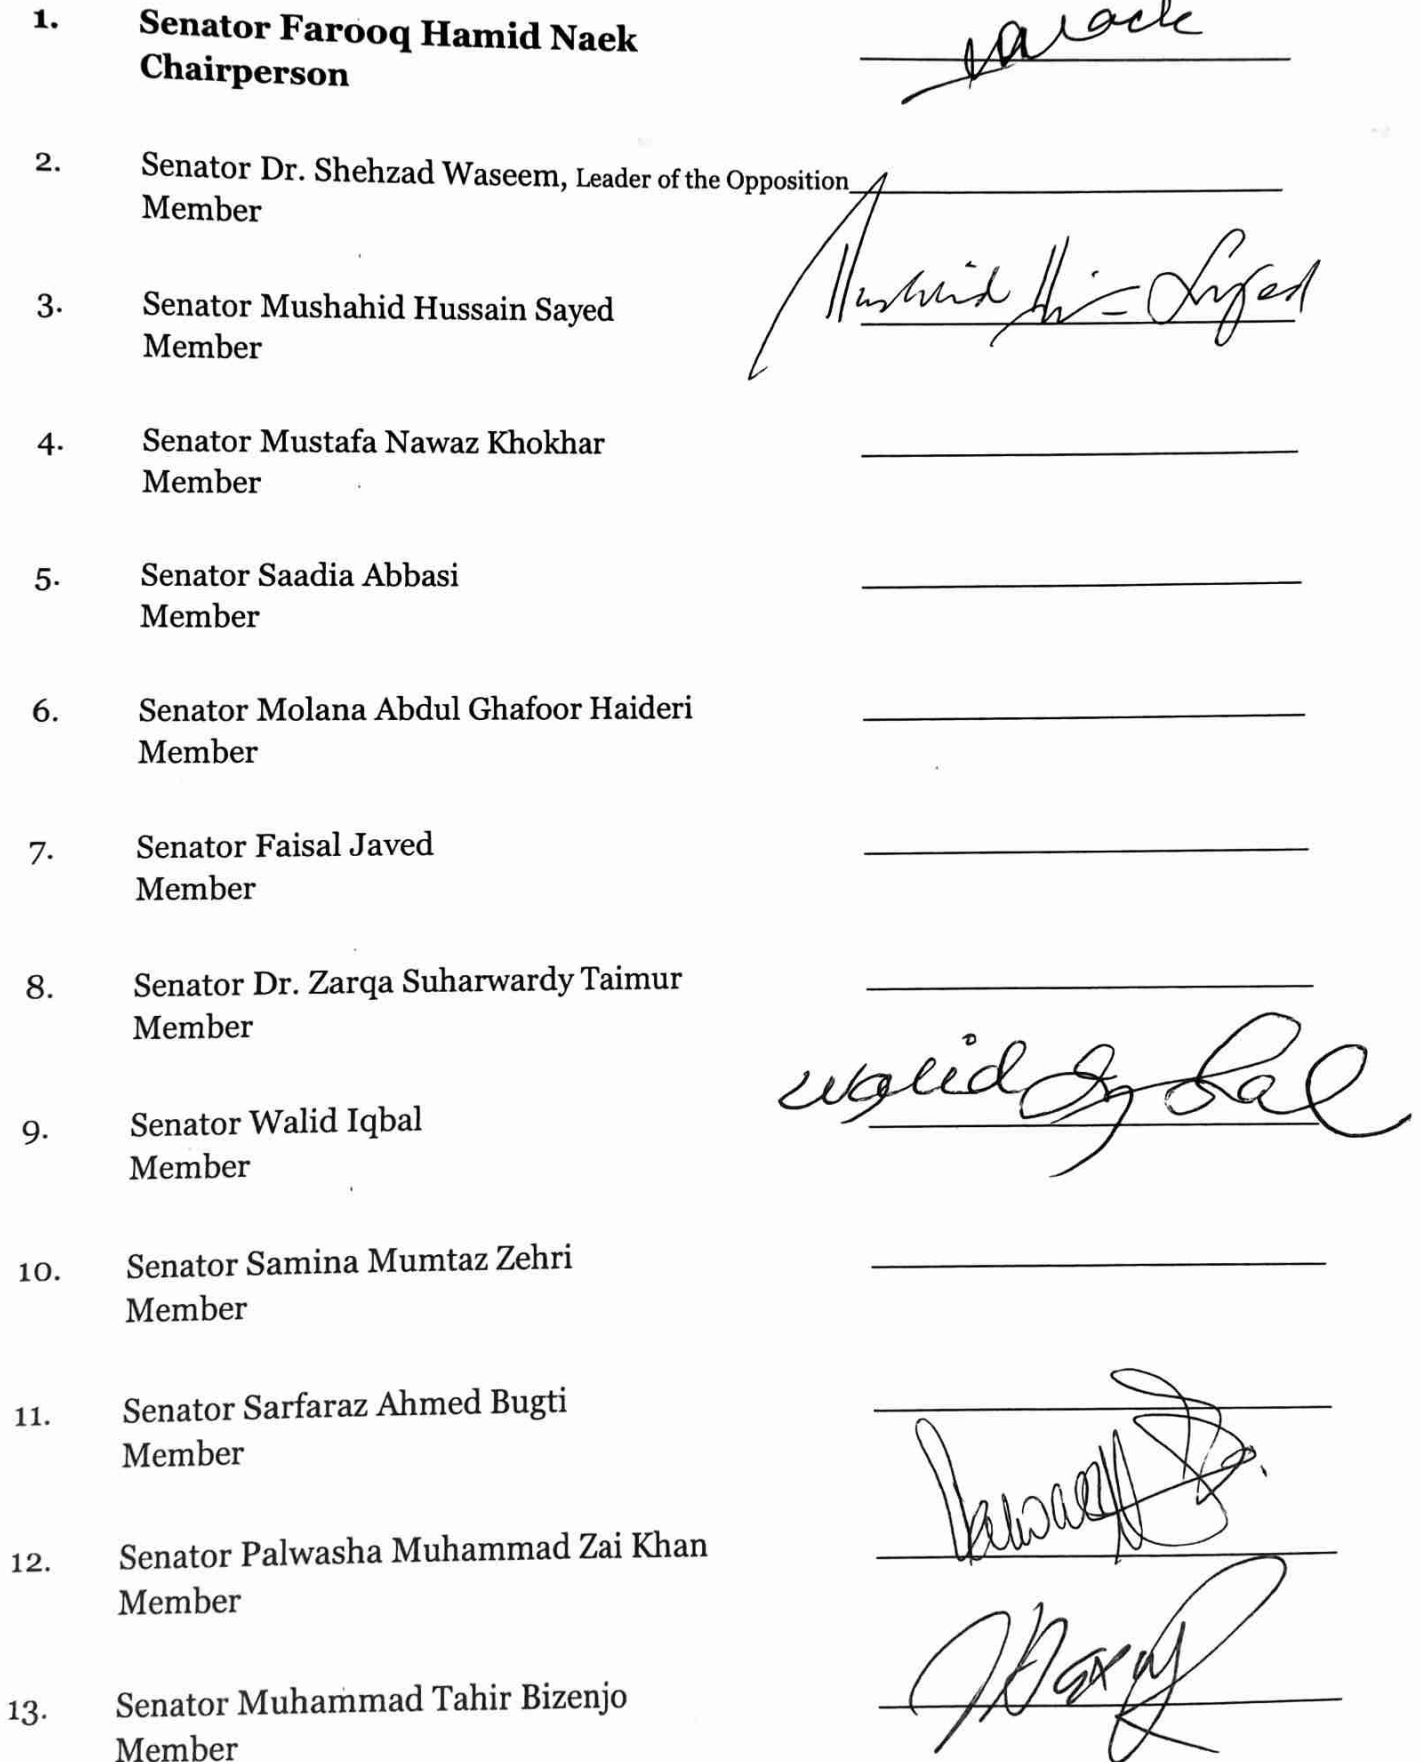 1. Senator Farooq Hamid Naek
Chairperson
2. Senator Dr. Shehzad Waseem, Leader of the Opposition
Member
3. Senator Mushahid Hussain Sayed
Member
4. Senator Mustafa Nawaz Khokhar
Member
5. Senator Saadia Abbasi
Member
6. Senator Molana Abdul Ghafoor Haideri
Member
7. Senator Faisal Javed
Member
8. Senator Dr. Zarqa Suharwardy Taimur
Member
walid Iqbal
9. Senator Walid Iqbal
Member
10. Senator Samina Mumtaz Zehri
Member
11. Senator Sarfaraz Ahmed Bugti
Member
12. Senator Palwasha Muhammad Zai Khan
Member
13. Senator Muhammad Tahir Bizenjo
Member